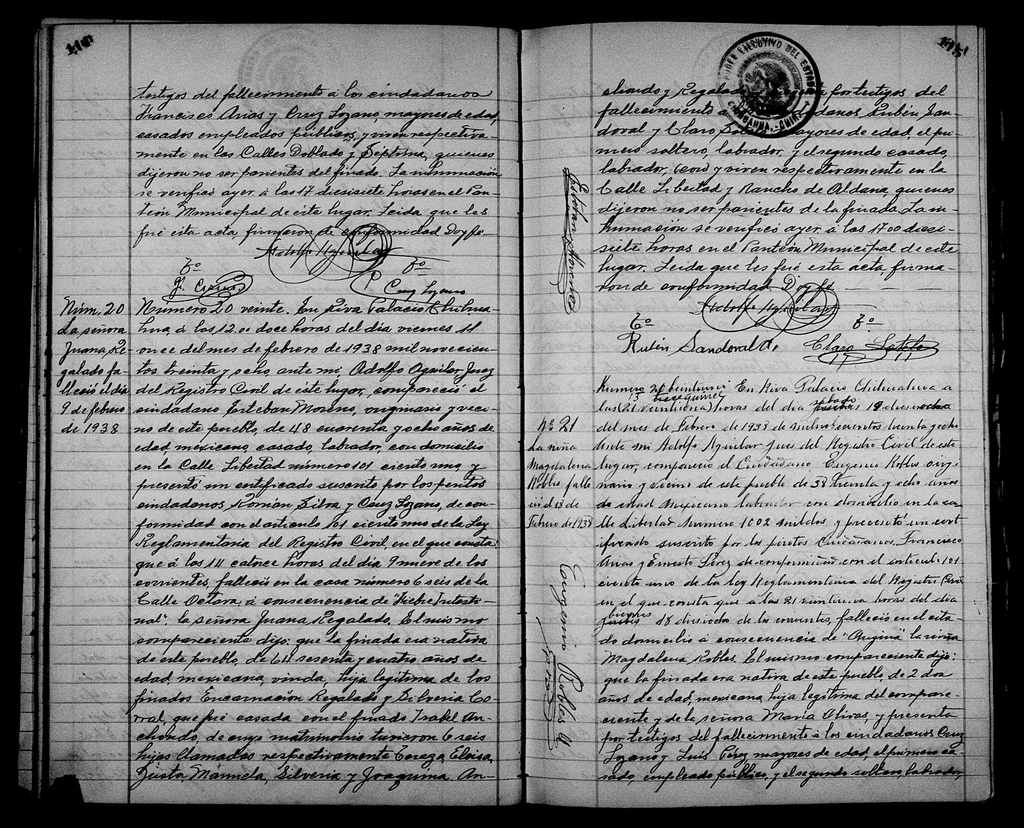 116
testigos del fallecimiento á los ciudadanos
Francisco Arias y Cruz Lozano, mayores de edad,
casados empleados públicos, y viven respectiva-
mente en las Calles Doblado y Séptima, quienes
dijeron no ser parientes del finado. La inhumación
se verificó ayer á las 17 diesisiete horas en el Pan-
teón Municipal de este lugar. Leida que les
fué esta acta firmaron de conformidad Doy fe.
Adolfo Aguilar
To To
Cruz Lozano
Núm. 20
La señora
Juana Re-
galado fa-
lleció el día
9 de febrero
de 1938
Número 20 veinte. En Riva Palacio, Chihua-
hua, á las 12.00 doce horas del día viernes 11
once del mes de febrero de 1938 mil novecien-
tos treinta y ocho, ante mí, Adolfo Aguilar, Juez
del Registro Civil de este lugar, compareció el
ciudadano Esteban Moreno, originario y veci-
no de este pueblo, de 48 cuarenta y ocho años de
edad, mexicano, casado, labrador, con domicilio
en la Calle Libertad número 101 ciento uno, y
presentó un certificado suscrito por los peritos
ciudadanos Román Silva y Cruz Lozano, de con-
formidad con el artículo 101 ciento uno de la Ley
Reglamentaria del Registro Civil, en el que consta
que á las 14 catorce horas del día 9 nueve de los
corrientes, falleció en la casa número 6 seis de la
Calle Octava, á consecuencia de "Fiebre Intesti-
nal", la señora Juana Regalado. El mismo
compareciente dijo: que la finada era nativa
de este pueblo, de 64 sesenta y cuatro años de
edad, mexicana, viuda, hija legítima de los
finados Encarnación Regalado y Silveria Co-
rral, que fué casada con el finado Isabel An-
chondo, de cuyo matrimonio tuvieron 6 seis
hijos llamados respectivamente Tereza, Eloisa,
Justa, Manuela, Silveria y Joaquina, An-
chondo y Regalado por testigos del
fallecimiento á Rubén San-
doval y Claro mayores de edad, el pri-
mero soltero, labrador, y el segundo casado,
labrador, y viven respectivamente en la
Calle Libertad y Rancho de Aldana, quienes
dijeron no ser parientes de la finada. La in-
humación se verificó ayer á las 17.00 dieci-
siete horas en el Panteón Municipal de este
lugar. Leida que les fué esta acta firma-
ron de conformidad Doy fe.
Adolfo Aguilar
To To
Rubén Sandoval
PODER EJECUTIVO DEL ESTADO
CHIHUAHUA, CHIH.
Esteban Moreno
No 21
La niña
Magdalena
Robles falle-
ció el 18 de
Febrero de 1938
Eugenio Robles
Número 21 veintiuno. En Riva Palacio Chihuahua a
las horas del día sábado 19
del mes de Febrero de 1938 mil novecientos treinta y ocho
ante mi Adolfo Aguilar juez del Registro Civil de este
lugar, compareció el Ciudadano Eugenio Robles orig-
inario y vecino de este pueblo de 38 treinta y ocho años
de edad Mexicano labrador con domicilio en la ca-
lle Libertad Numero 1002 mil dos, y presentó un cert-
ificado suscrito por los peritos Ciudadanos Francisco
Arias y Ernesto Pérez de conformidad con el artículo 101
ciento uno de la Ley Reglamentaria del Registro Civil
en el que consta que a las 21 veintiuna horas del día
viernes 18 dieciocho de los corrientes, falleció en el cita-
do domicilio á consecuencia de "Angina" la niña
Magdalena Robles. El mismo compareciente dijo:
que la finada era nativa de este pueblo de 2 dos
años de edad, mexicana, hija legítima del compare-
ciente y de la señora María Olivas, y presenta
por testigos del fallecimiento á los ciudadanos Cruz
Lozano y Luis Pérez, mayores de edad, el primero ca-
sado, empleado público, y el segundo soltero, labrador,